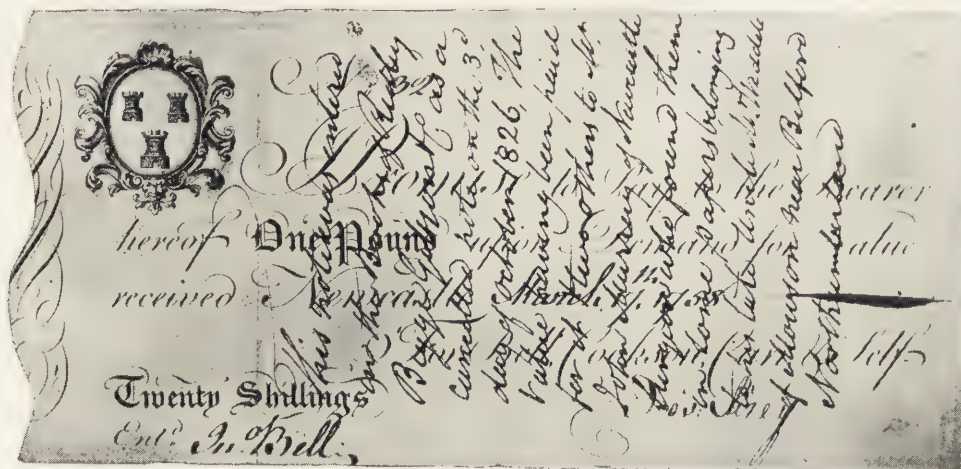 Promise to Pay to the Bearer
hereof One Pound upon Demand for value
received Newcastle March 17th 1758
Cookson Carr & Self
Jos. Airey
Twenty Shillings
Entd. Jno. Bell
This note was entered
into the books of Ridley
Bigge Gibson & Co as a
cancelled note on the 3d
day of October 1826, The
Value having been paid
for it & two others to Mr.
John Murray of Newcastle
Surgeon who found them
in some papers belonging
to his late Uncle Mr. Weddell
of Mouson near Belford
Northumberland